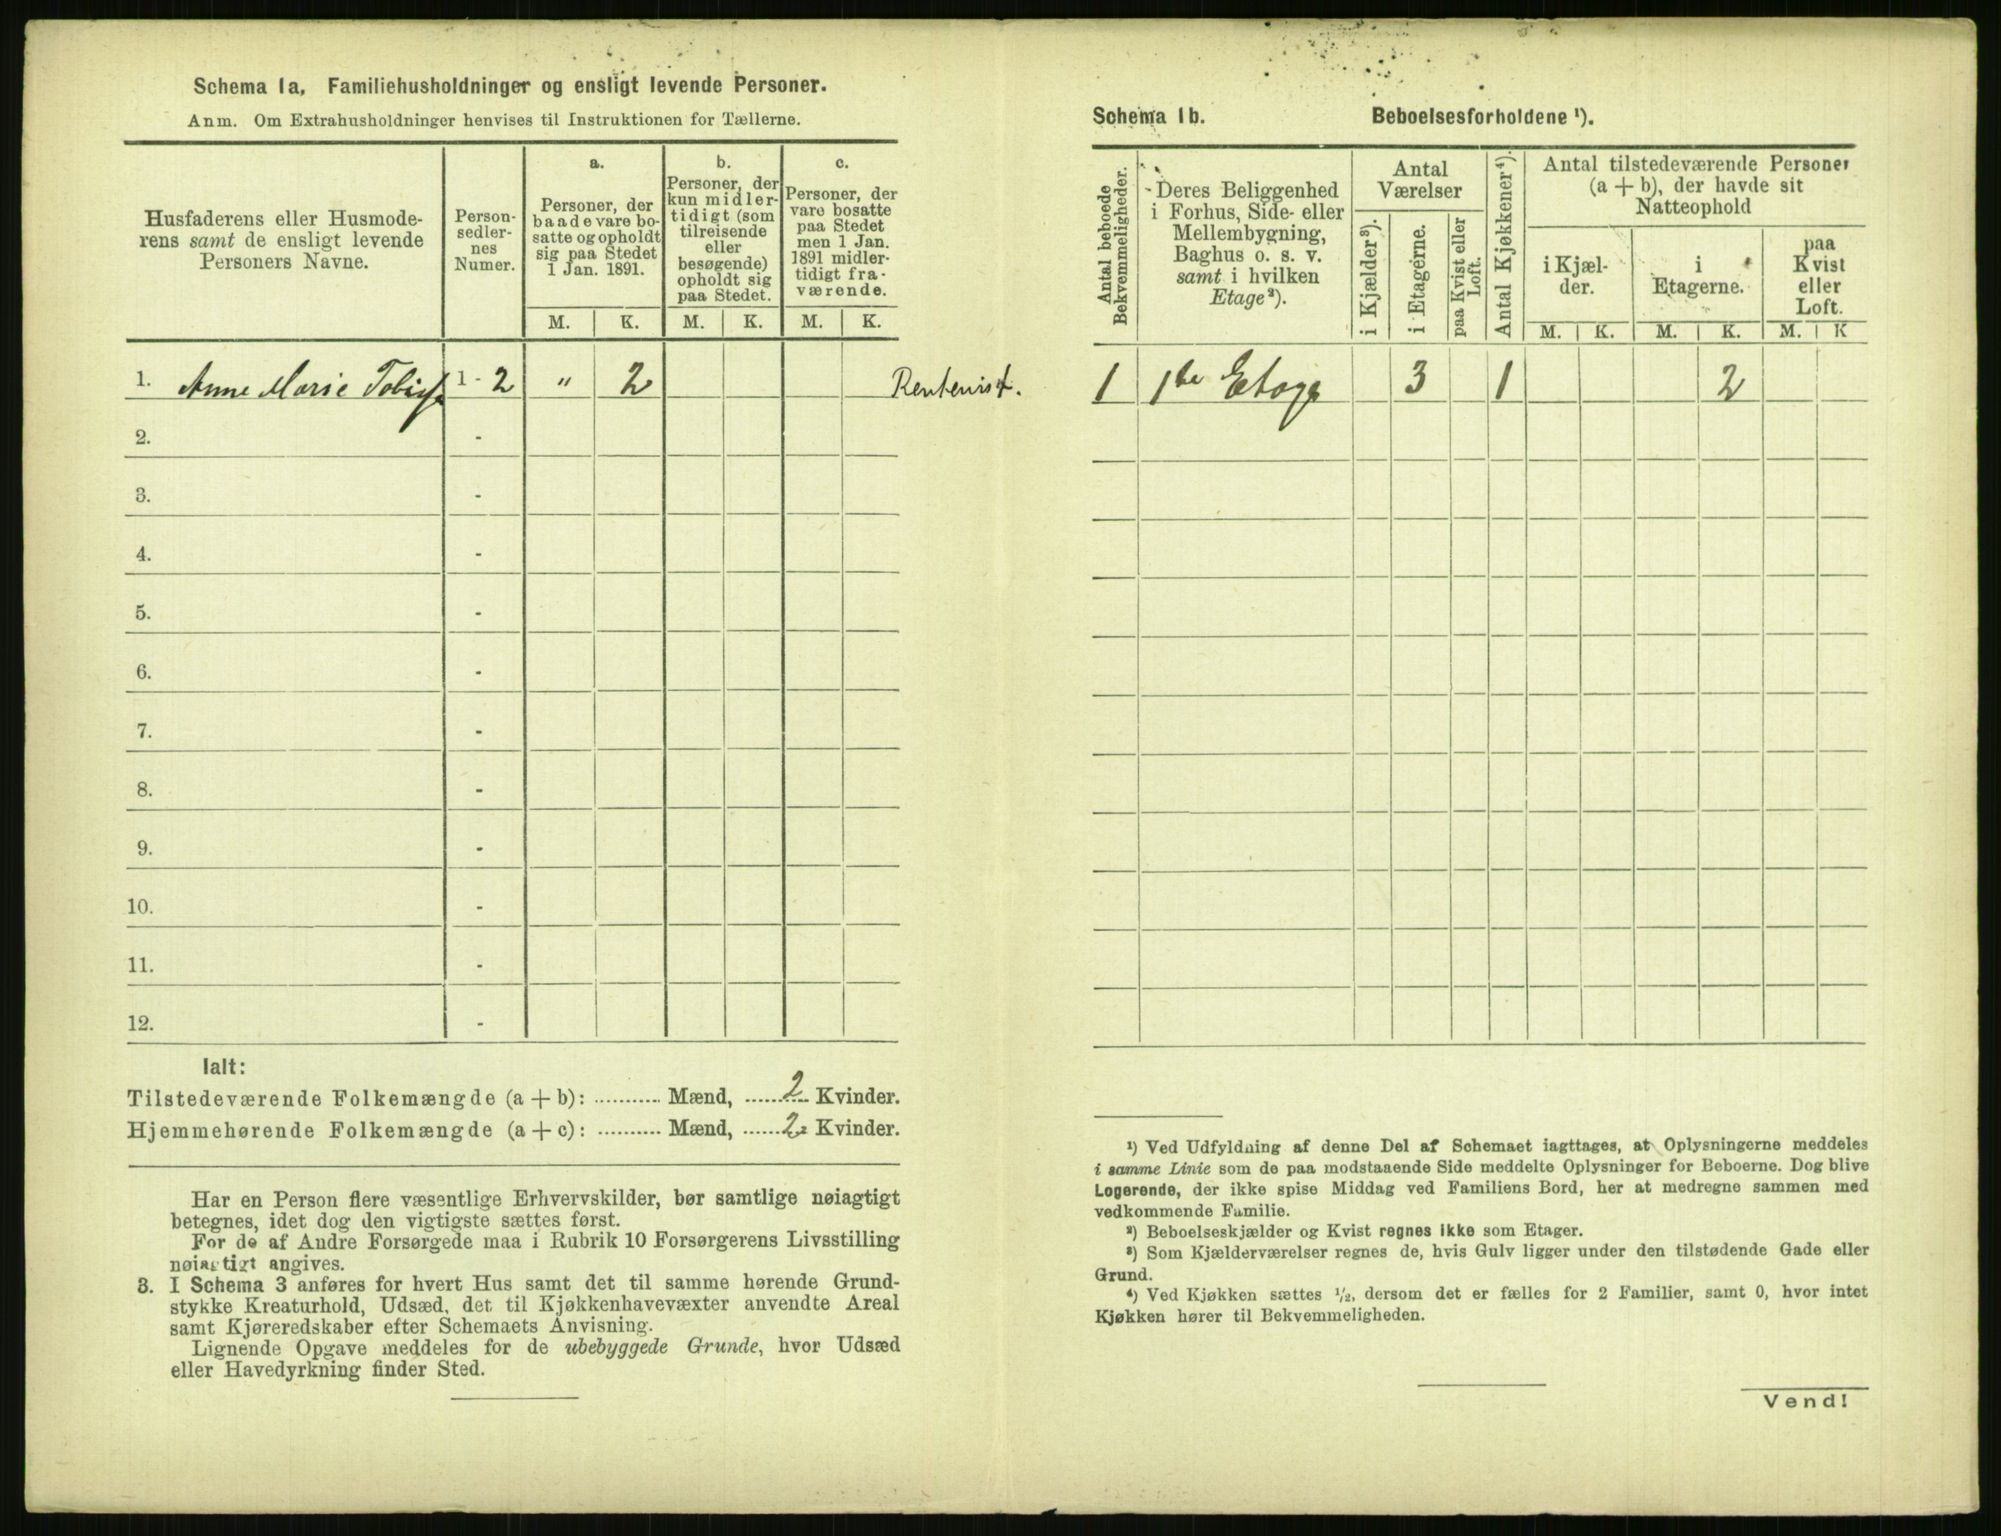 Schema 1a, Familiehusholdninger og ensligt levende Personer.
Anm. Om Extrahusholdninger henvises til Instruktionen for Tællerne.
Husfaderens eller Husmode-
rens samt de ensligt levende
Personers Navne.
Person-
sedler-
nes
Numer.
a.
Personer, der
baade vare bo-
satte og opholdt
sig paa Stedet
1 Jan. 1891.
b.
Personer, der
kun midler-
tidigt (som
tilreisende
eller
besøgende)
opholdt sig
paa Stedet.
c.
Personer, der
vare bosatte
paa Stedet
men 1 Jan.
1891 midler-
tidigt fra-
værende.
M. K. M. K. M. K.
1. Anne Marie 1 - 2 " 2 Rentenist.
2. -
3. -
4. -
5. -
6. -
7. -
8. -
9. -
10. -
11. -
12. -
Ialt:
Tilstedeværende Folkemængde (a + b): ........... Mænd, ......2... Kvinder.
Hjemmehørende Folkemængde (a + c): ........... Mænd, ......2. Kvinder.
Har en Person flere væsentlige Erhvervskilder, bør samtlige nøiagtigt
betegnes, idet dog den vigtigste sættes først.
For de af Andre Forsørgede maa i Rubrik 10 Forsørgerens Livsstilling
nøiagtigt angives.
3. I Schema 3 anføres for hvert Hus samt det til samme hørende Grund-
stykke Kreaturhold, Udsæd, det til Kjøkkenhavevæxter anvendte Areal
samt Kjøreredskaber efter Schemaets Anvisning.
Lignende Opgave meddeles for de ubebyggede Grunde, hvor Udsæd
eller Havedyrkning finder Sted.
Schema 1b. Beboelsesforholdene ¹).
Antal beboede
Bekvemmeligheder.
Deres Beliggenhed
i Forhus, Side- eller
Mellembygning,
Baghus o. s. v.
samt i hvilken
Etage ²).
Antal
Værelser
i Kjælder ³).
i Etagerne.
paa Kvist eller
Loft.
Antal Kjøkkener ⁴).
Antal tilstedeværende Personer
(a + b), der havde sit
Natteophold
i Kjæl-
der.
i
Etagerne.
paa
Kvist
eller
Loft.
M. K. M. K. M. K
1 1te Etage 3 1 2
¹) Ved Udfyldning af denne Del af Schemaet iagttages, at Oplysningerne meddeles
i samme Linie som de paa modstaaende Side meddelte Oplysninger for Beboerne. Dog blive
Logerende, der ikke spise Middag ved Familiens Bord, her at medregne sammen med
vedkommende Familie.
²) Beboelseskjælder og Kvist regnes ikke som Etager.
³) Som Kjælderværelser regnes de, hvis Gulv ligger under den tilstødende Gade eller
Grund.
⁴) Ved Kjøkken sættes ½, dersom det er fælles for 2 Familier, samt 0, hvor intet
Kjøkken hører til Bekvemmeligheden.
Vend!